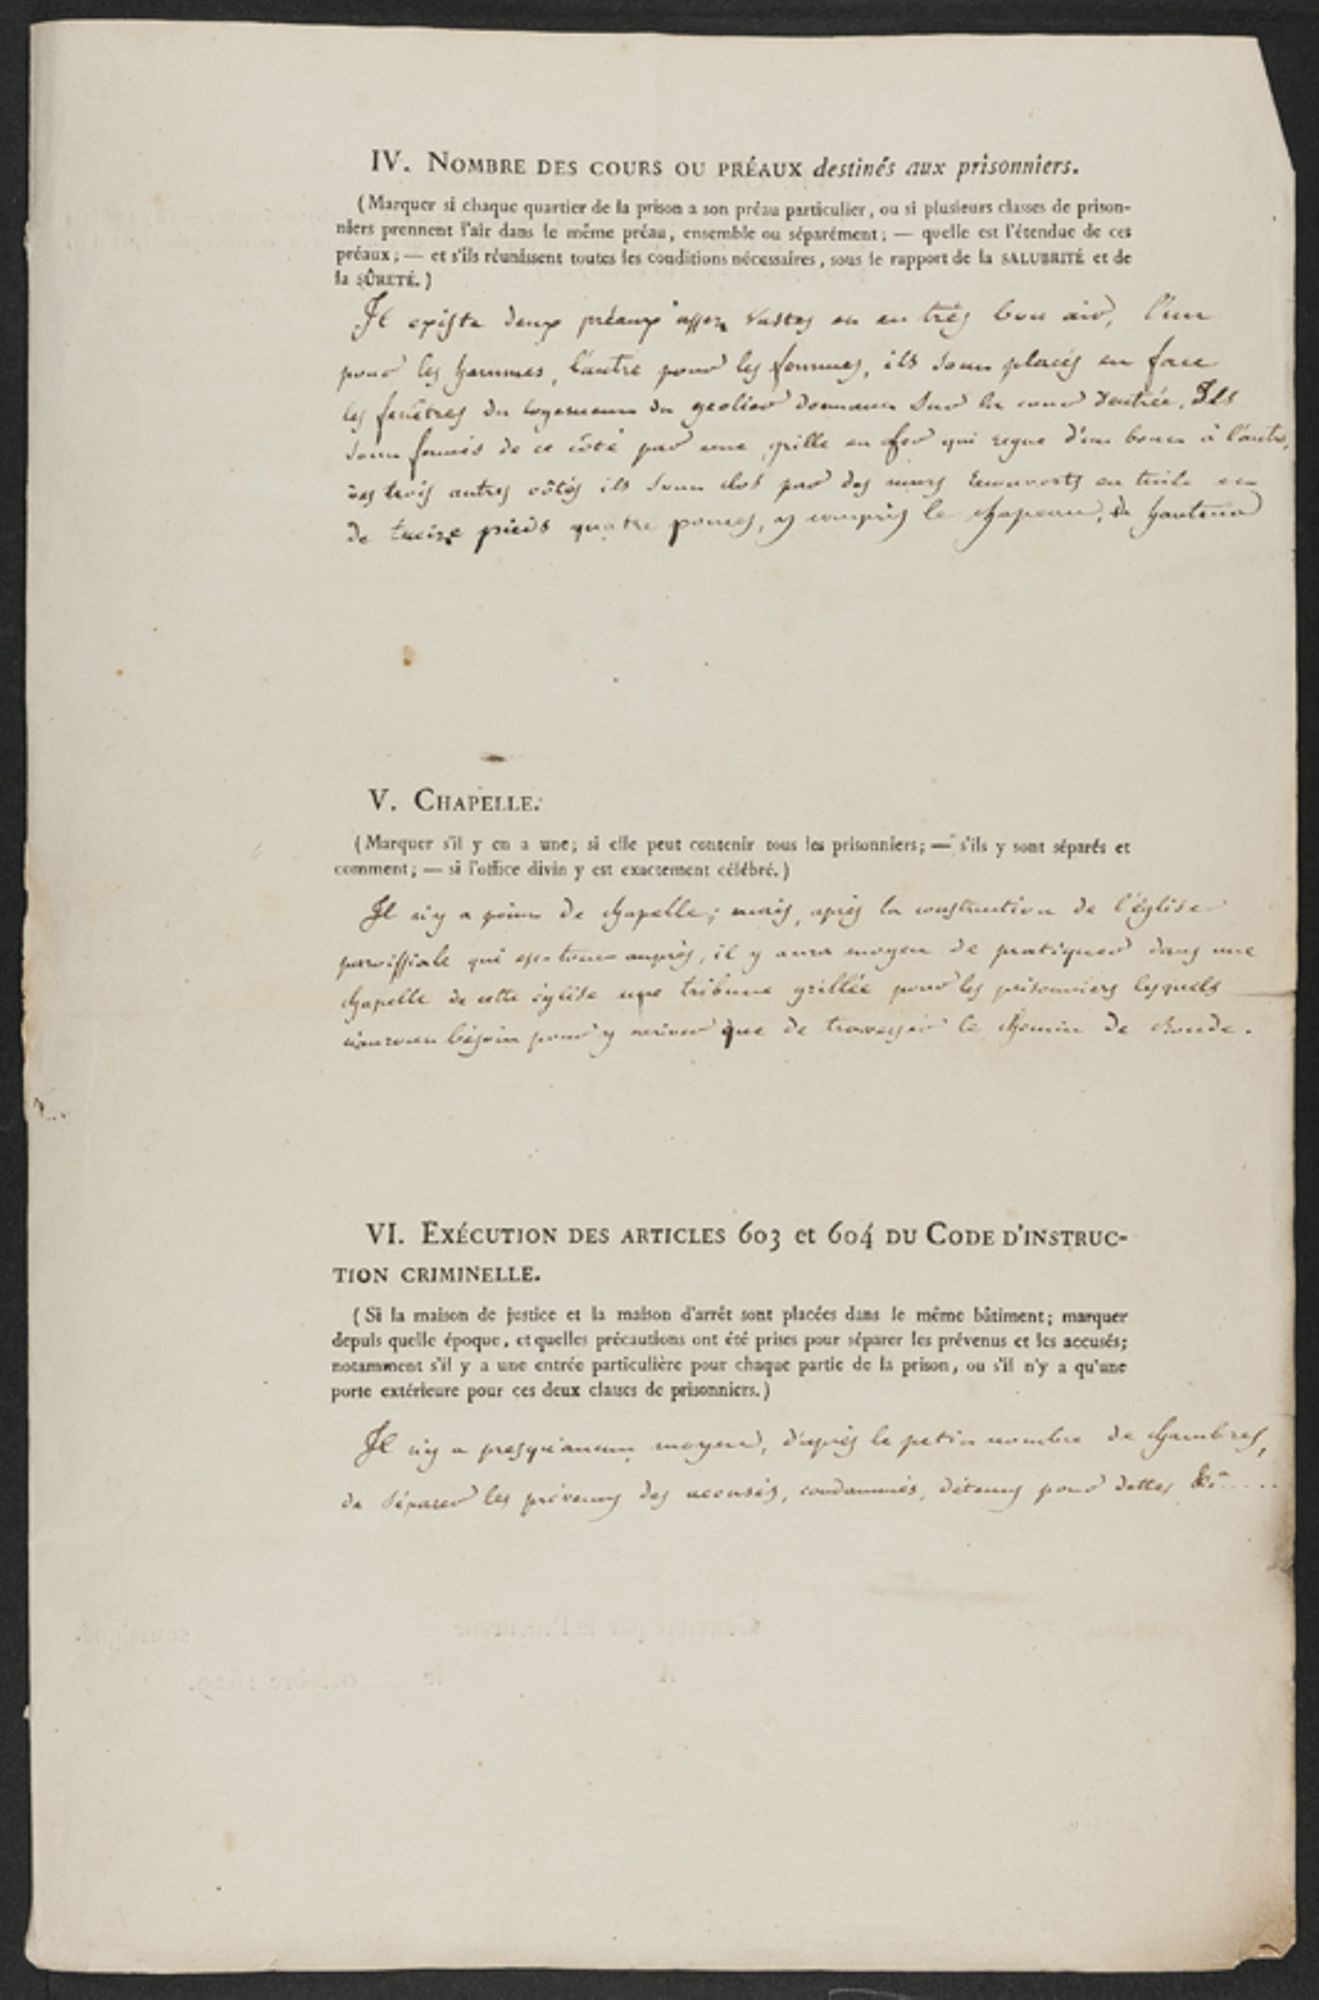 IV. NOMBRE DES COURS OU PRÉAUX destinés aux prisonniers.
(Marquer si chaque quartier de la prison a son préau particulier, ou si plusieurs classes de prison-
niers prennent l'air dans le même préau, ensemble ou séparément; — quelle est l'étendue de ces
préaux; — et s'ils réunissent toutes les conditions nécessaires, sous le rapport de la SALUBRITÉ et de
la SÛRETÉ.)
Il existe deux préaux assez vastes et en très bon air, l'un
pour les hommes, l'autre pour les femmes, ils sont placés en face
les fenêtres du logement du geolier donnant sur la cour d'entrée. Ils
sont fermés de ce côté par une grille en fer qui regne d'un bout à l'autre,
des trois autres côtés ils sont clos par des murs recouverts en tuile et
de treize pieds quatre pouces, y compris le chapeau, de hauteur
V. CHAPELLE.
(Marquer s'il y en a une; si elle peut contenir tous les prisonniers; — s'ils y sont séparés et
comment; — si l'office divin y est exactement célébré.)
Il n'y a point de chapelle; mais, après la construction de l'église
paroissiale qui est tout auprès, il y aura moyen de pratiquer dans une
chapelle de cette église une tribune grillée pour les prisonniers lesquels
n'auront besoin pour y arriver que de traverser le chemin de ronde.
VI. EXÉCUTION DES ARTICLES 603 et 604 DU CODE D'INSTRUC-
TION CRIMINELLE.
(Si la maison de justice et la maison d'arrêt sont placées dans le même bâtiment; marquer
depuis quelle époque, et quelles précautions ont été prises pour séparer les prévenus et les accusés;
notamment s'il y a une entrée particulière pour chaque partie de la prison, ou s'il n'y a qu'une
porte extérieure pour ces deux classes de prisonniers.)
Il n'y a presqu'aucun moyen, d'après le petit nombre de chambres,
de séparer les prévenus des accusés, condamnés, détenus pour dettes &c.....